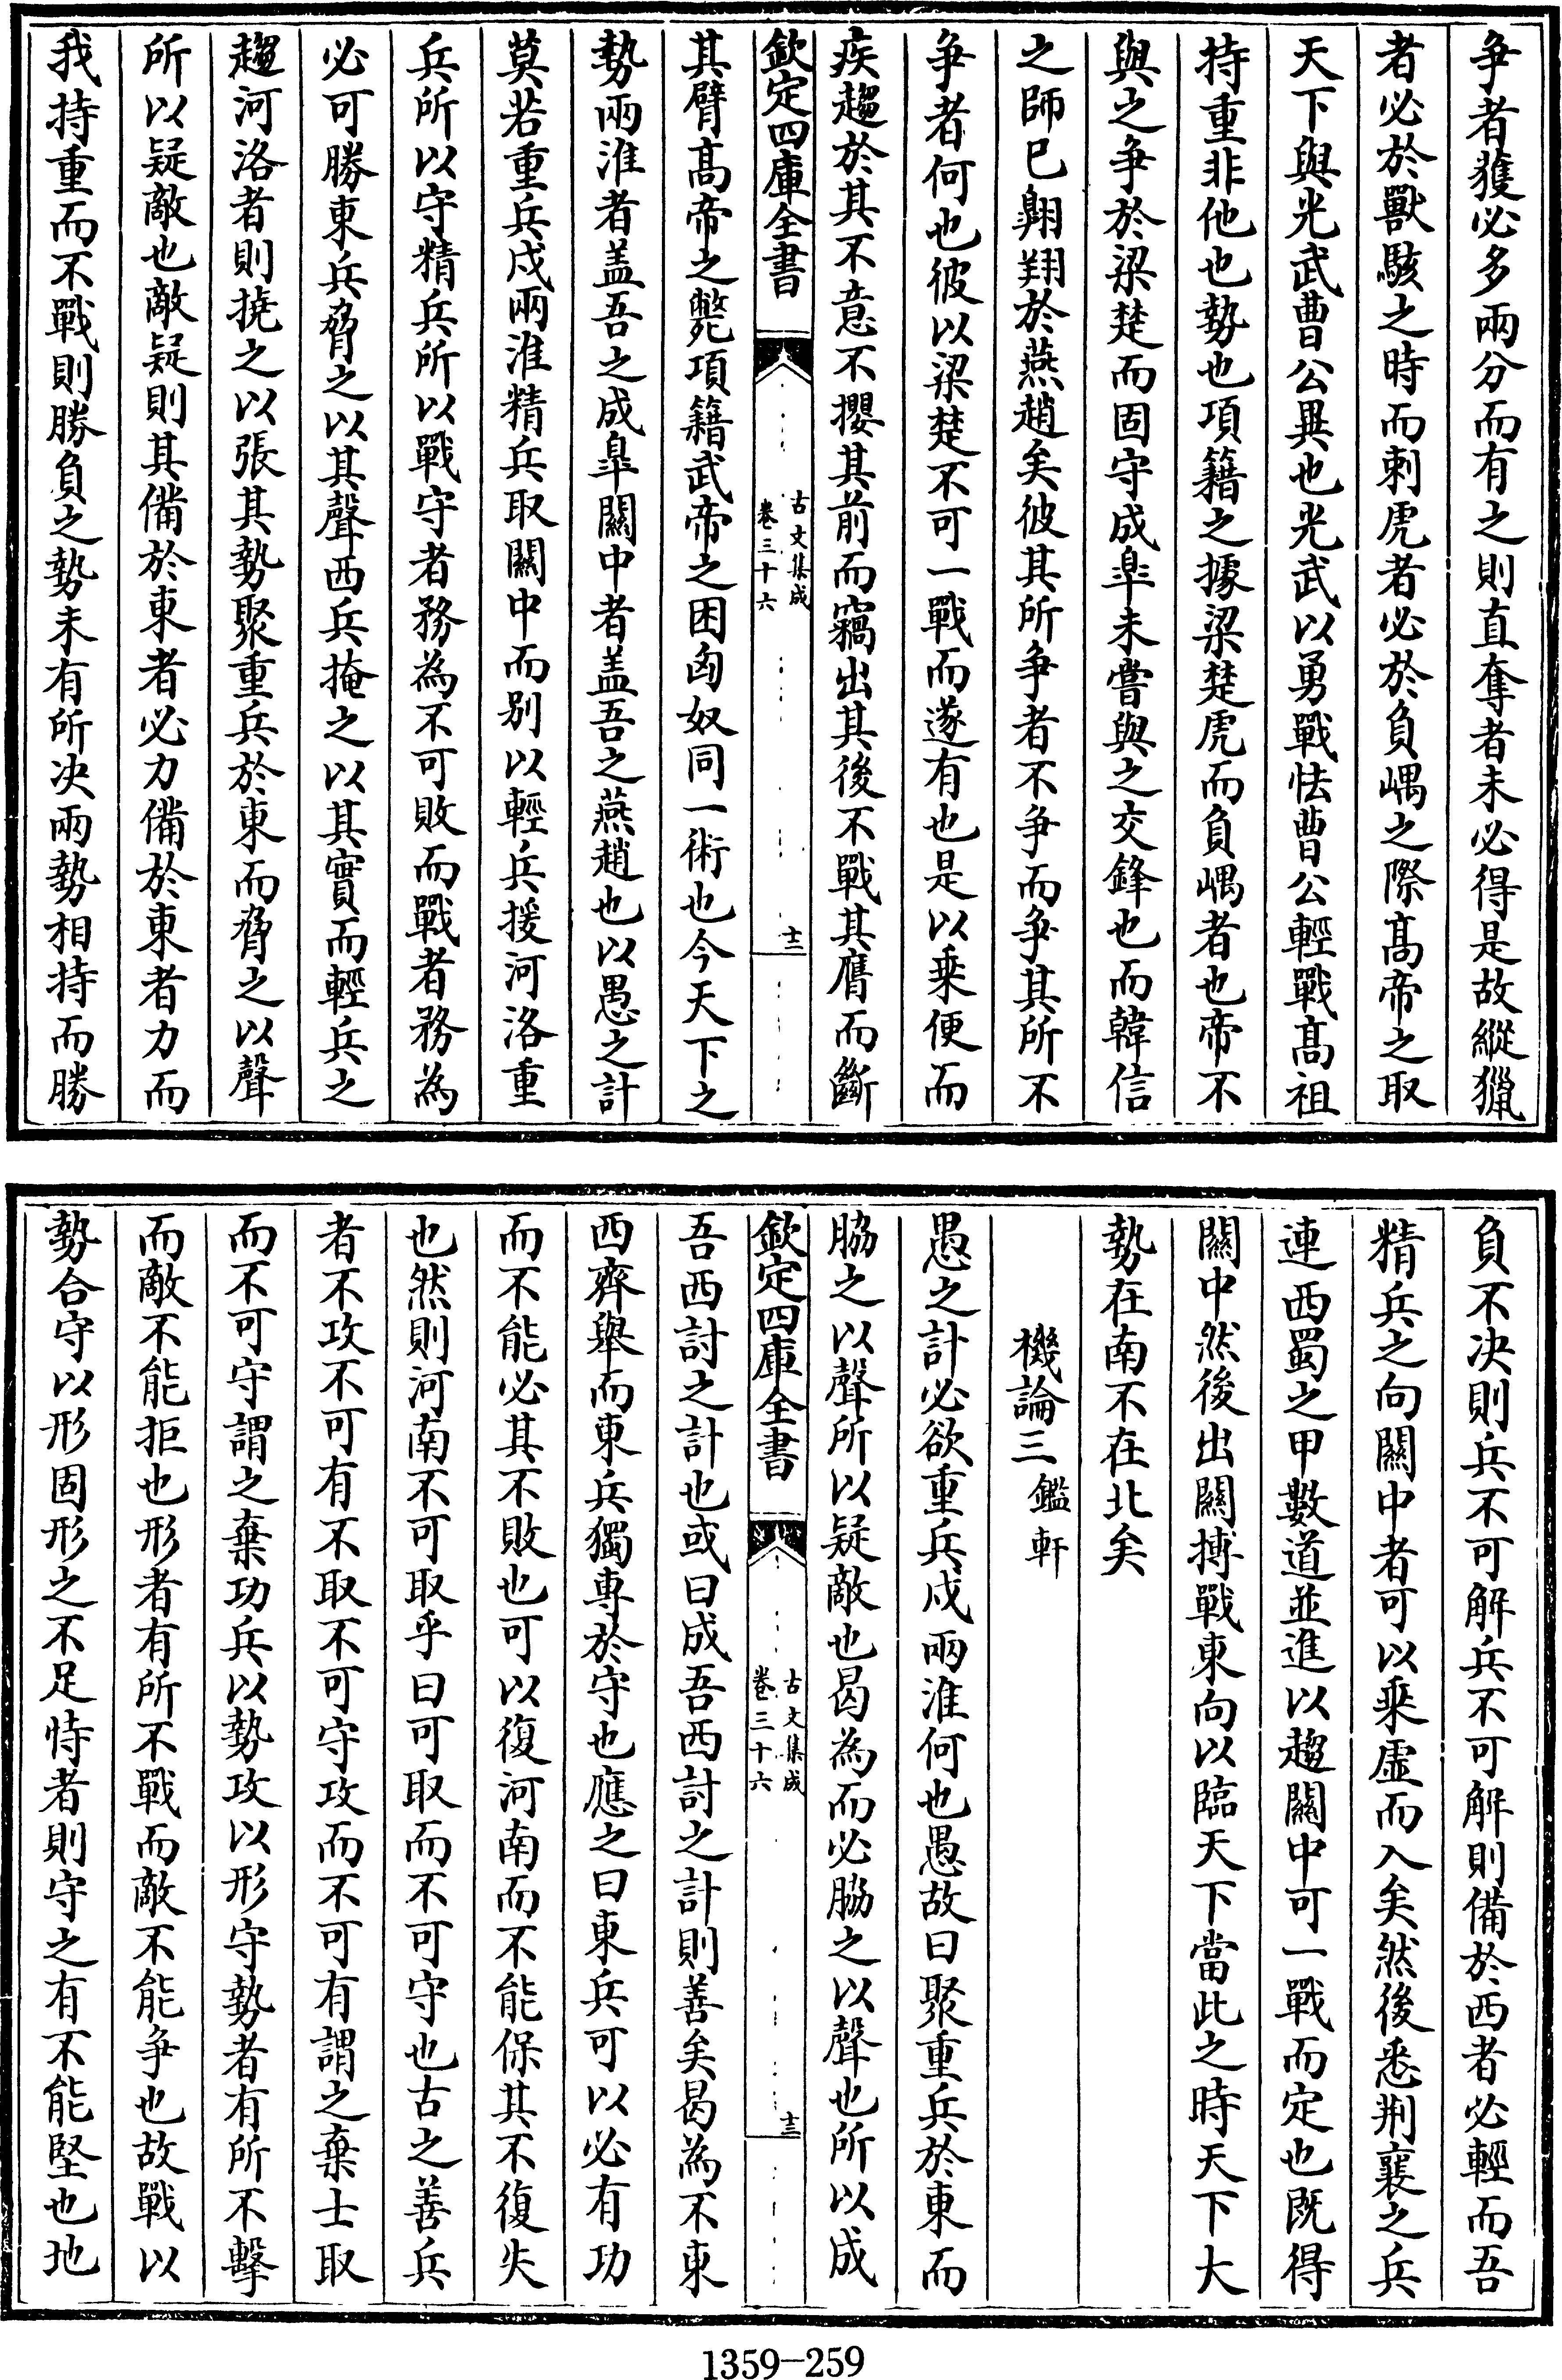 爭者獲必多兩分而有之則直奪者未必得是故縱獵
者必於獸駭之時而刺虎者必於負嵎之際髙帝之取
天下與光武曹公異也光武以勇戰怯曹公輕戰髙祖
持重非他也勢也項籍之據梁楚虎而負嵎者也帝不
與之爭於梁楚而固守成臯未嘗與之交鋒也而韓信
之師已翺翔於燕趙矣彼其所爭者不爭而爭其所不
爭者何也彼以梁楚不可一戰而遂有也是以乗便而
疾趨於其不意不攖其前而竊出其後不戰其膺而斷
欽定四庫全書
古文集成
卷三十六
十二
其臂髙帝之斃項籍武帝之困匈奴同一術也今天下之
勢兩淮者盖吾之成臯關中者盖吾之燕趙也以愚之計
莫若重兵戍兩淮精兵取關中而别以輕兵援河洛重
兵所以守精兵所以戰守者務為不可敗而戰者務為
必可勝東兵脅之以其聲西兵掩之以其實而輕兵之
趨河洛者則撓之以張其勢聚重兵於東而脅之以聲
所以疑敵也敵疑則其備於東者必力備於東者力而
我持重而不戰則勝負之勢未有所决兩勢相持而勝
負不决則兵不可解兵不可解則備於西者必輕而吾
精兵之向關中者可以乘虛而入矣然後悉荆襄之兵
連西蜀之甲數道並進以趨關中可一戰而定也既得
關中然後出關搏戰東向以臨天下當此之時天下大
勢在南不在北矣
機論三 鑑軒
愚之計必欲重兵戍兩淮何也愚故曰聚重兵於東而
脇之以聲所以疑敵也曷為而必脇之以聲也所以成
欽定四庫全書
古文集成
卷三十六
十三
吾西討之計也或曰成吾西討之計則善矣曷為不東
西齊舉而東兵獨専於守也應之曰東兵可以必有功
而不能必其不敗也可以復河南而不能保其不復失
也然則河南不可取乎曰可取而不可守也古之善兵
者不攻不可有不取不可守攻而不可有謂之棄士取
而不可守謂之棄功兵以勢攻以形守勢者有所不擊
而敵不能拒也形者有所不戰而敵不能爭也故戰以
勢合守以形固形之不足恃者則守之有不能堅也地
1359-259